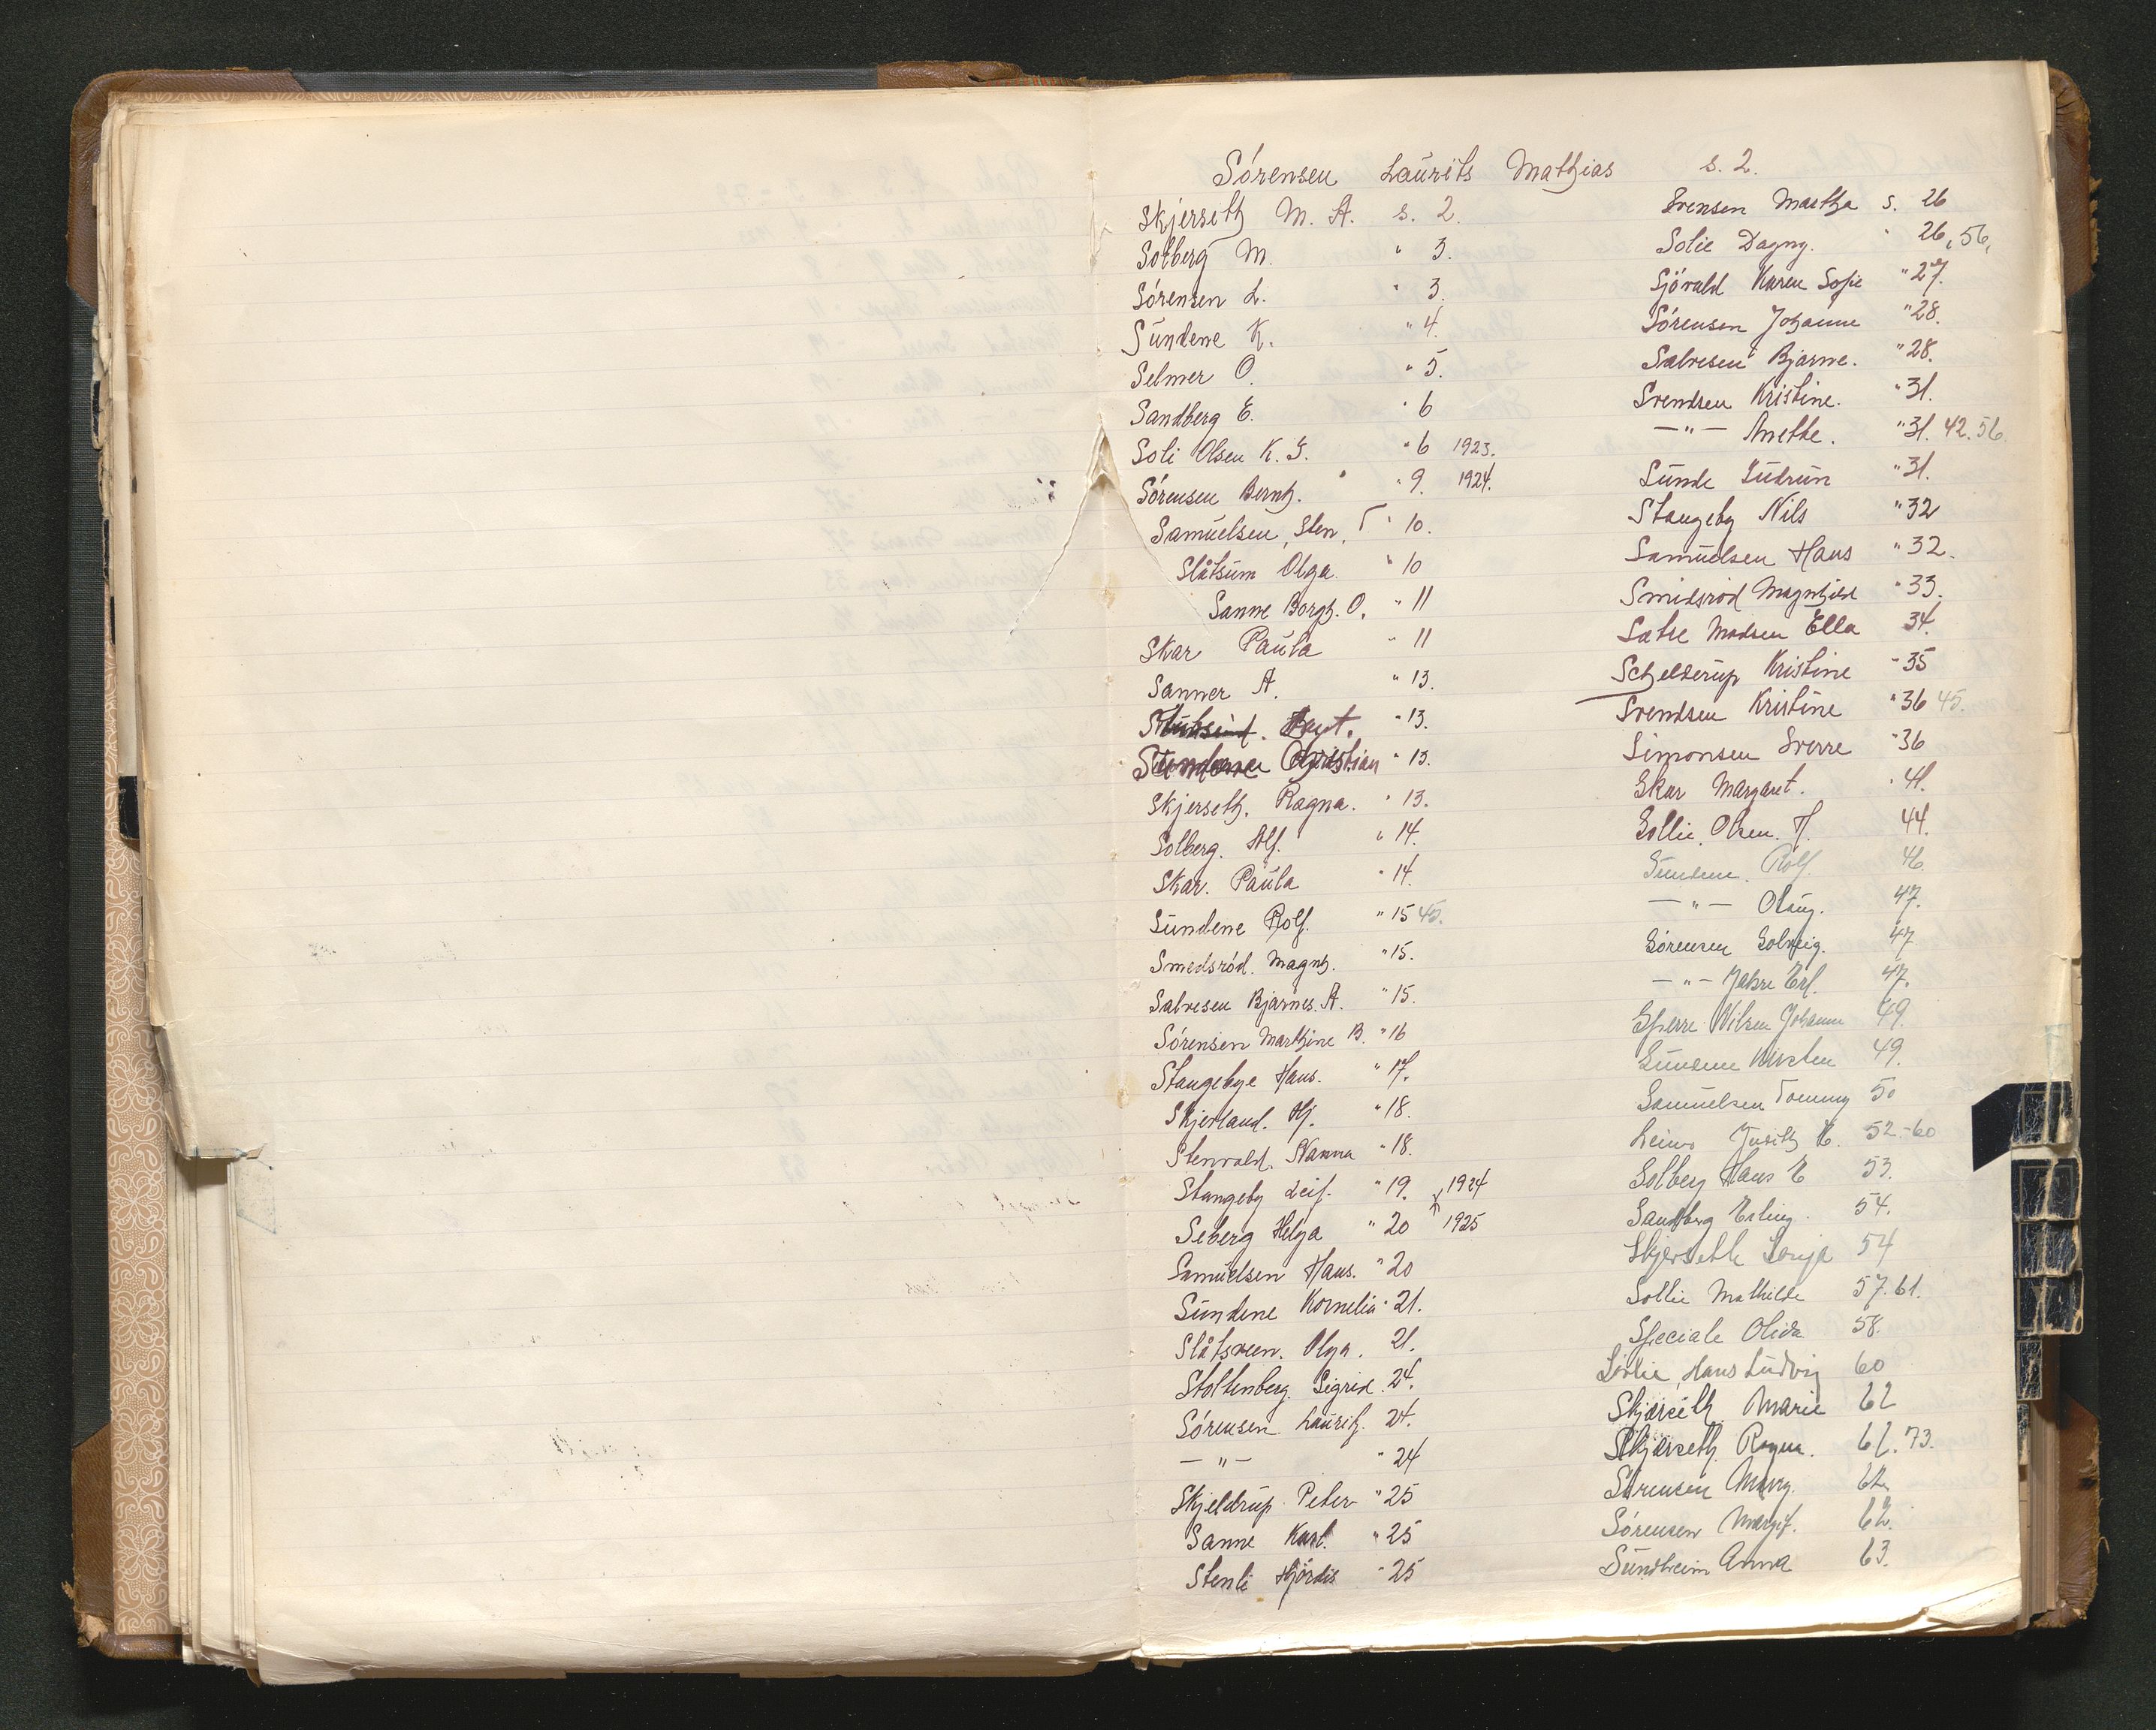 Sórensen Laurits Mathias s. 2.
Skjerseth M. A. s. 2.
Solberg M. " 3.
Sórensen L. " 3.
Sundene K. " 4.
Selmer O. " 5.
Sandberg E. " 6
Soli Olsen K. G. " 6 1923.
Sórensen Bernh. " 9. 1924.
Samuelsen, Sten, T " 10.
Slåtsum Olga " 10
Sanne Borgh. O. " 11
Skar Paula " 11
Sanner A. " 13.
" 13.
Christian " 13.
Skjerseth, Ragna. " 13.
Solberg. Alf. " 14.
Skar. Paula " 14.
Sundene Rolf. " 15 45.
Smedsród. Magnh. " 15.
Salvesen Bjarnes. A. " 15.
Sórensen Marthine B. " 16
Stangebye Hans. " 17.
Skjerland. Hj. " 18.
Stenvald. Nanna " 18.
Stangeby Leif. " 19. 1924
Seberg Helga " 20 1925
Samuelsen Hans. " 20
Sundene Kornelia " 21.
Slåtsveen. Olga. 21.
Stoltenberg Sigrid. 24.
Sórensen Lauritz. 24.
— " — " 24
Skjeldrup Peter " 25
Sanne Karl. " 25
Stenli Hjórdis " 25
Svensen Martha s. 26
Solie Dagny. " 26, 56,
Sjóvald Karen Sofie " 27.
Sórensen Johanne " 28.
Salvesen Bjarne. " 28.
Svendsen Kristine. " 31.
— " — Anethe. " 31. 42. 56.
Sunde Gudrun " 31.
Stangeby Nils " 32
Samuelsen Hans " 32.
Smidsród Magnhild " 33.
Sætre Madsen Ella 34.
Schelderup Kristine " 35
Svendsen Kristine " 36 45.
Simonsen Sverre " 36
Skar Margaret. " 41.
Sollie, Olsen. H. 44.
Sundene. Rolf. 46.
— " — Olaug. 47.
Sórensen Solveig. 47
— " — Jahre Erl. 47.
Sperre Nilsen Johanne 49.
Sundene Kirsten 49.
Samuelsen Tommy 50
52-60
Solberg Hans E 53.
Sandberg Erling. 54.
Skjerseth Sonja 54
Sollie Mathilde 57. 61.
Speciale Olida 58.
Sórlie, Hans Ludvig 60
Skjærseth Marie 62
Skjærseth Ragna. 62. 73.
Sórensen Margit. 62.
Sundheim Anna 63.